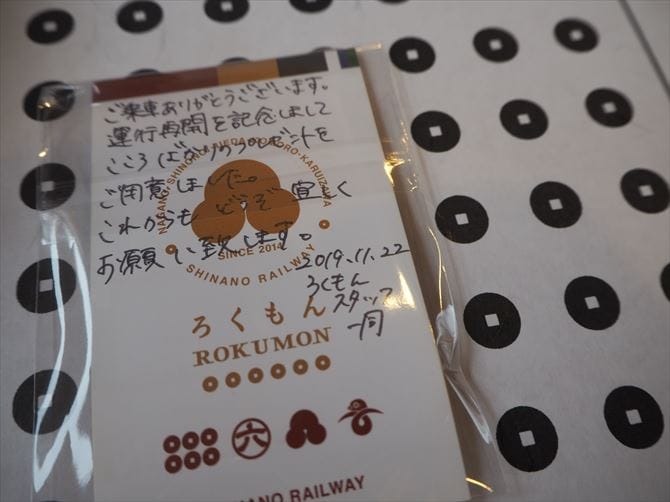 ご乗車ありがとうございます。
運行再開を記念しまして
こころばかりのプレゼントを
ご用意しました。
これからもどうぞ宜しく
お願い致します。
2019.11.22
ろくもん
スタッフ
一同
NAGANO-SHINONOI-UEDA-KOMORO-KARUIZAWA
SINCE 2014
SHINANO RAILWAY
ろくもん
ROKUMON
六
SHINANO RAILWAY